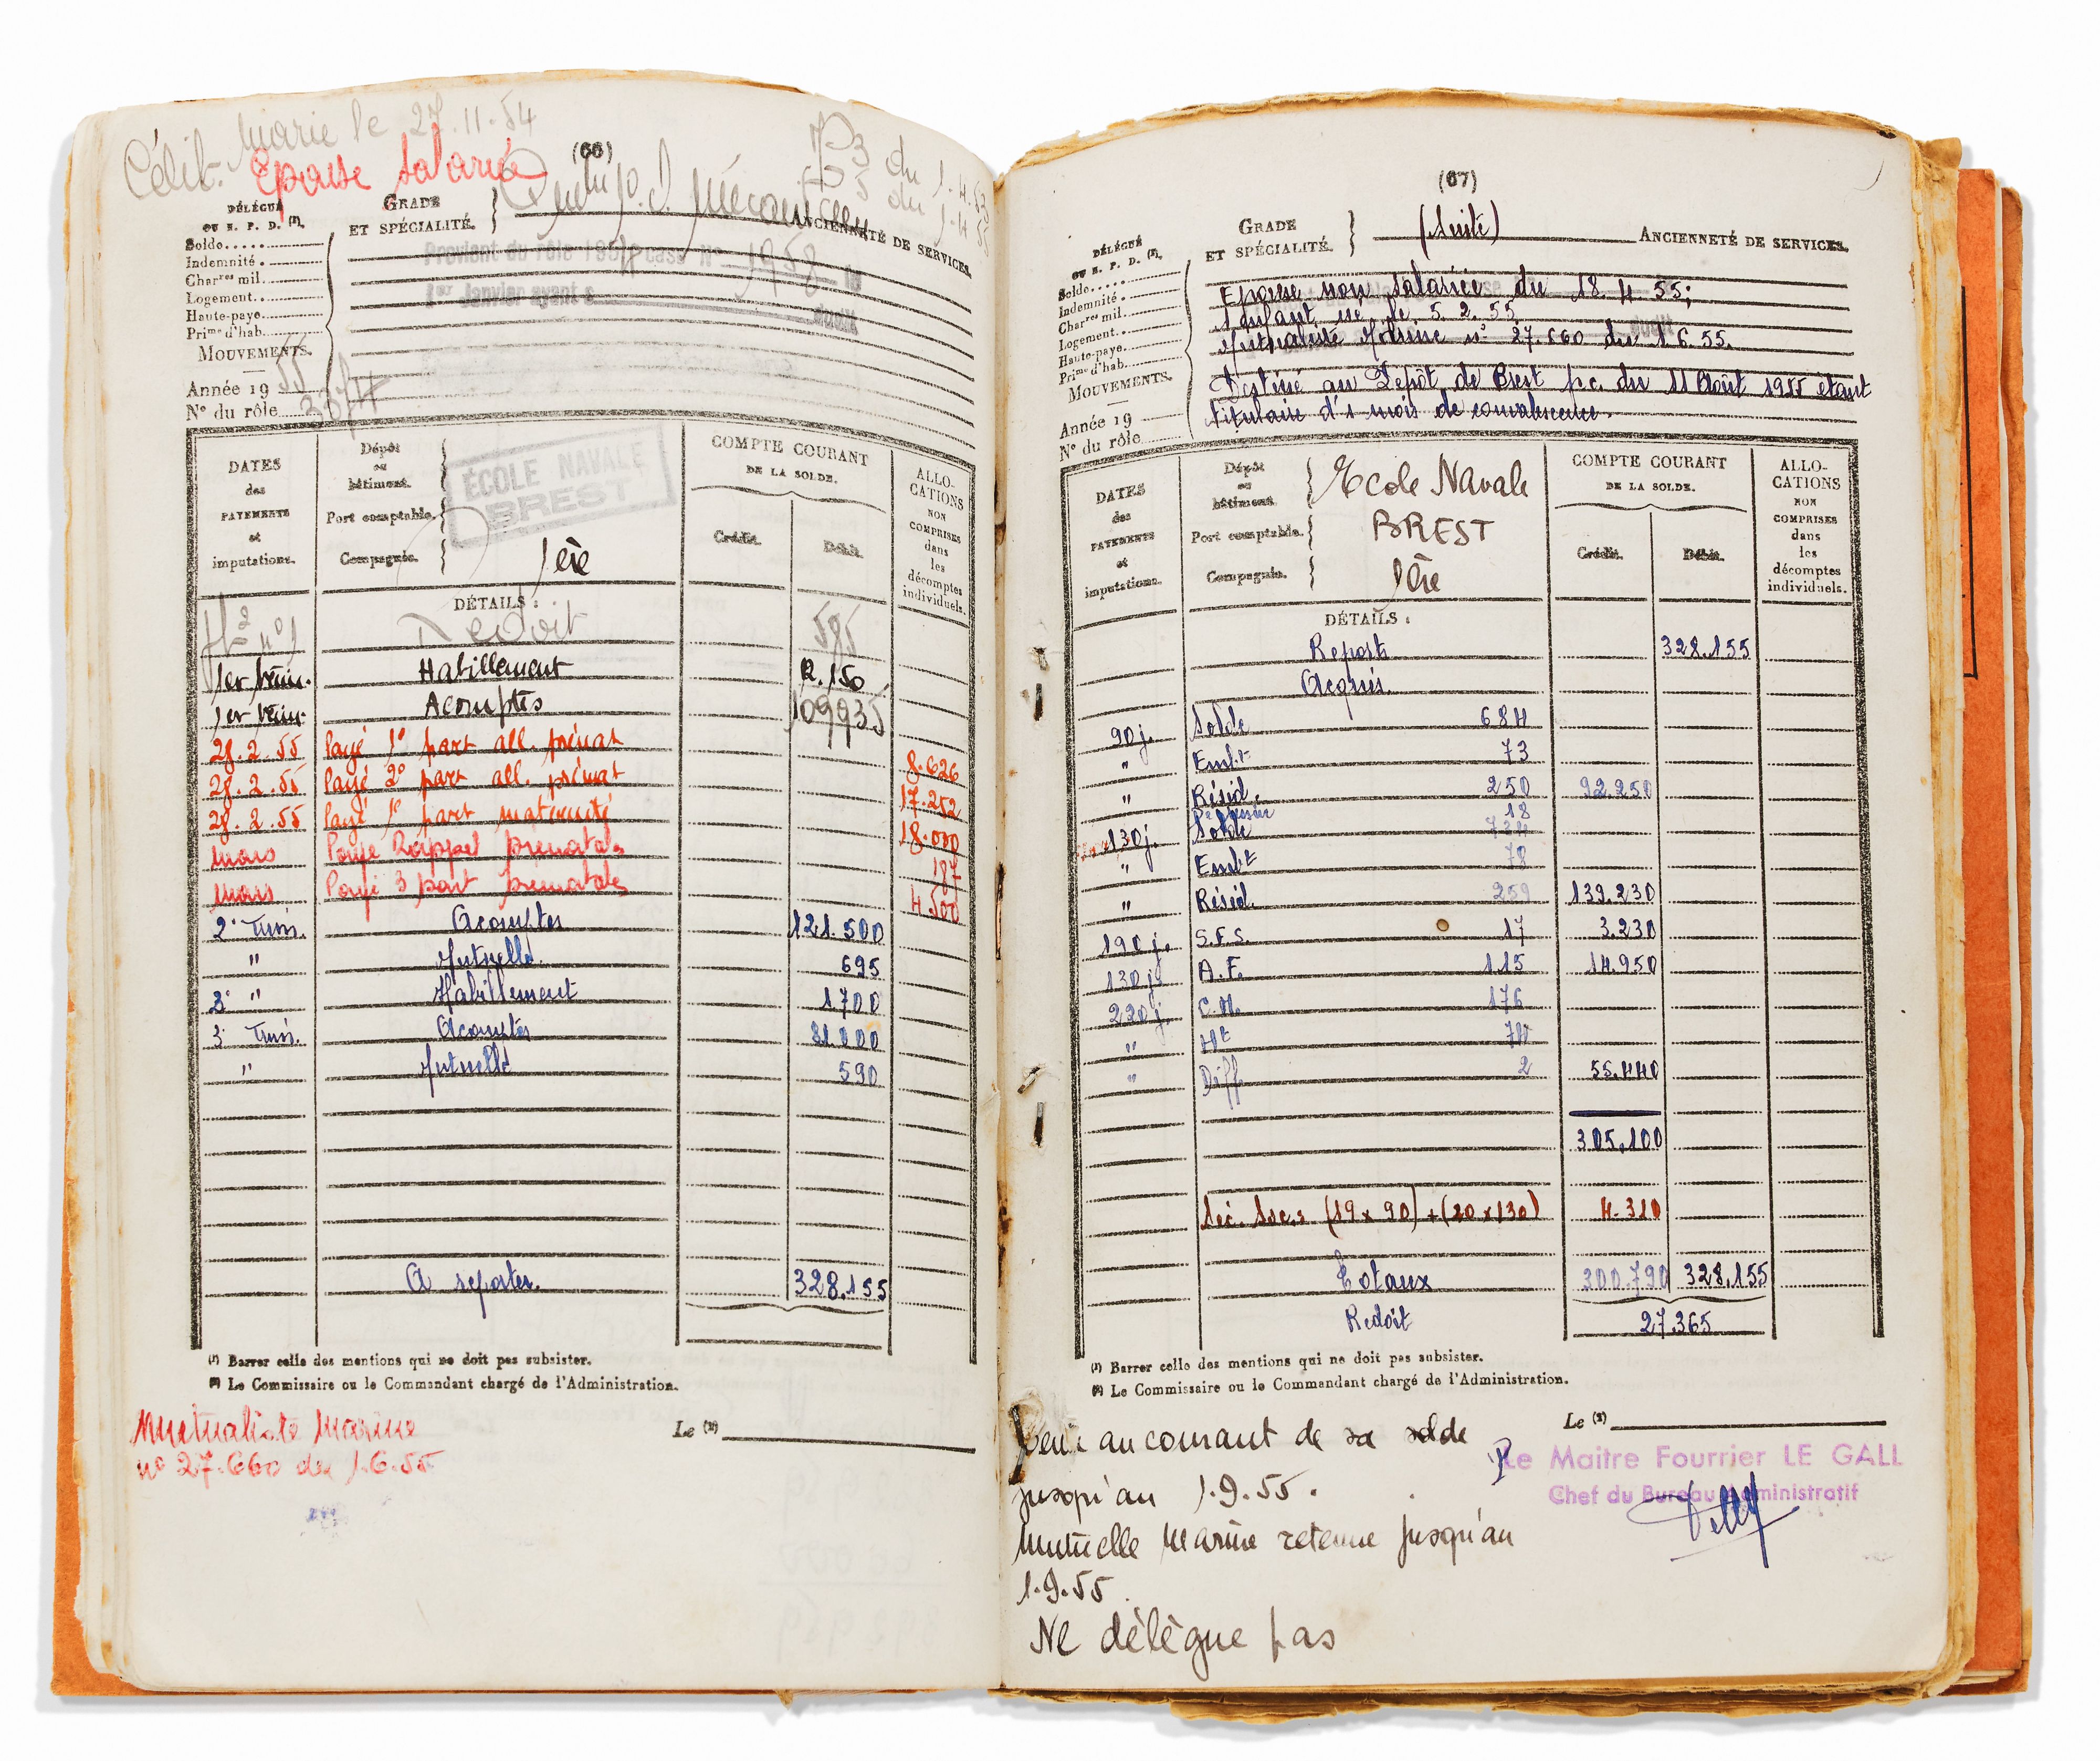 Célib. Marié le 27.11.54
Epouse salariée
(66)
du 1.4.53
du 1.4.55
DÉLÉGUÉ
OU N. P. D. (1).
Solde.....
Indemnité.
Charres mil.
Logement..
Haute-paye.
Prime d'hab.
MOUVEMENTS.
Année 19 55
N° du rôle
GRADE
ET SPÉCIALITÉ.
ANCIENNETÉ DE SERVICES.
Provient du rôle 1954 case N° 1958 le
1er Janvier ayant s
dudit
DATES
des
PAYEMENTS
et
imputations.
Dépôt
ou
bâtiment.
Port comptable.
Compagnie.
ÉCOLE NAVALE
BREST
1ère
COMPTE COURANT
DE LA SOLDE.
Crédit.
Débit.
ALLO-
CATIONS
NON
COMPRISES
dans
les
décomptes
individuels.
DÉTAILS :
Redoit 585
1er trim. Habillement 12.150
1er trim. Acomptes 109935
28.2.55 Payé 1° part all. prénat 8.626
28.2.55 Payé 2° part all. prénat 17.252
28.2.55 Payé 1e part maternité 18.000
mars Payé Rappel prenatales 187
mars Payé 3 part prenatales 4.500
2e Trim. Acomptes 121.500
" Mutuelle 695
3e " Habillement 1700
3e Trim. Acomptes 81.000
" Mutuelle 590
A reporter. 328.155
(1) Barrer celle des mentions qui ne doit pas subsister.
(2) Le Commissaire ou le Commandant chargé de l'Administration.
Le (2)
Mutualiste Marine
n° 27.660 du 1.6.55
(67)
DÉLÉGUÉ
OU N. P. D. (1).
Solde.....
Indemnité.
Charres mil.
Logement..
Haute-paye.
Prime d'hab.
MOUVEMENTS.
Année 19
N° du rôle
GRADE
ET SPÉCIALITÉ.
(Suite)
ANCIENNETÉ DE SERVICES.
Epouse non salariée du 18.4.55;
1 enfant né le 5.2.55
Mutualiste Marine n° 27.660 du 1.6.55.
Destiné au Dépôt de Brest p.c. du 11 Août 1955 étant
titulaire d'1 mois de convalescence.
DATES
des
PAYEMENTS
et
imputations.
Dépôt
ou
bâtiment.
Port comptable.
Compagnie.
Ecole Navale
BREST
1ère
COMPTE COURANT
DE LA SOLDE.
Crédit.
Débit.
ALLO-
CATIONS
NON
COMPRISES
dans
les
décomptes
individuels.
DÉTAILS :
Report 328.155
Acquis.
90 j. Solde 684
" Embt 73
" Résid. 250 92.250
18
130 j. Solde
" Embt 78
" Résid. 259 139.230
190 j. S.F.S. 17 3.230
130 j. A.F. 115 14.950
220 j. C.M. 176
" Ht 74
" Diff. 2 55.440
305.100
Séc. Soc.s (19 x 90) + (20 x 130) 4.310
Totaux 300.790 328.155
Redoit 27.365
(1) Barrer celle des mentions qui ne doit pas subsister.
(2) Le Commissaire ou le Commandant chargé de l'Administration.
Le (2)
au courant de sa solde
jusqu'au 1.9.55.
Mutuelle Marine retenue jusqu'au
1.9.55.
Ne délègue pas
Le Maitre Fourrier LE GALL
Chef du Bureau Administratif